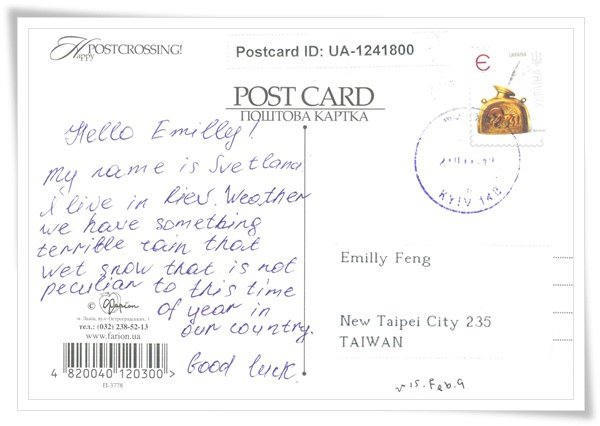 Happy POSTCROSSING!
Postcard ID: UA-1241800
Є
УКРАЇНА
УКРАЇНА
POST CARD
ПОШТОВА КАРТКА
KYIV 148
Hello Emilly!
My name is Svetlana
I live in Kiev. Weather
we have something
terrible rain that
wet snow that is not
peculiar to this time
of year in
our country.
Good luck
© Фarion
м. Львів, вул. Острозградських, 1
тел.: (032) 238-52-13
www.farion.ua
4 820040 120300 >
П-3778
Emilly Feng
New Taipei City 235
TAIWAN
v 15. Feb. 9